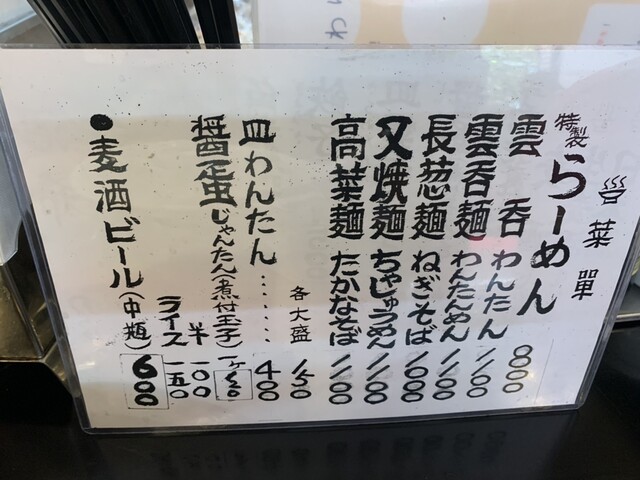 営菜單
特製らーめん 800
雲呑 わんたん 1100
雲呑麺 わんたんめん 1000
長葱麺 ねぎそば 1000
叉焼麺 ちゃしゅうめん 1100
高菜麺 たかなそば 1100
各大盛 150
皿わんたん……… 400
醤蛋じゃんたん(煮付玉子)
半 100
ライス 150
●麦酒ビール(中瓶) 600